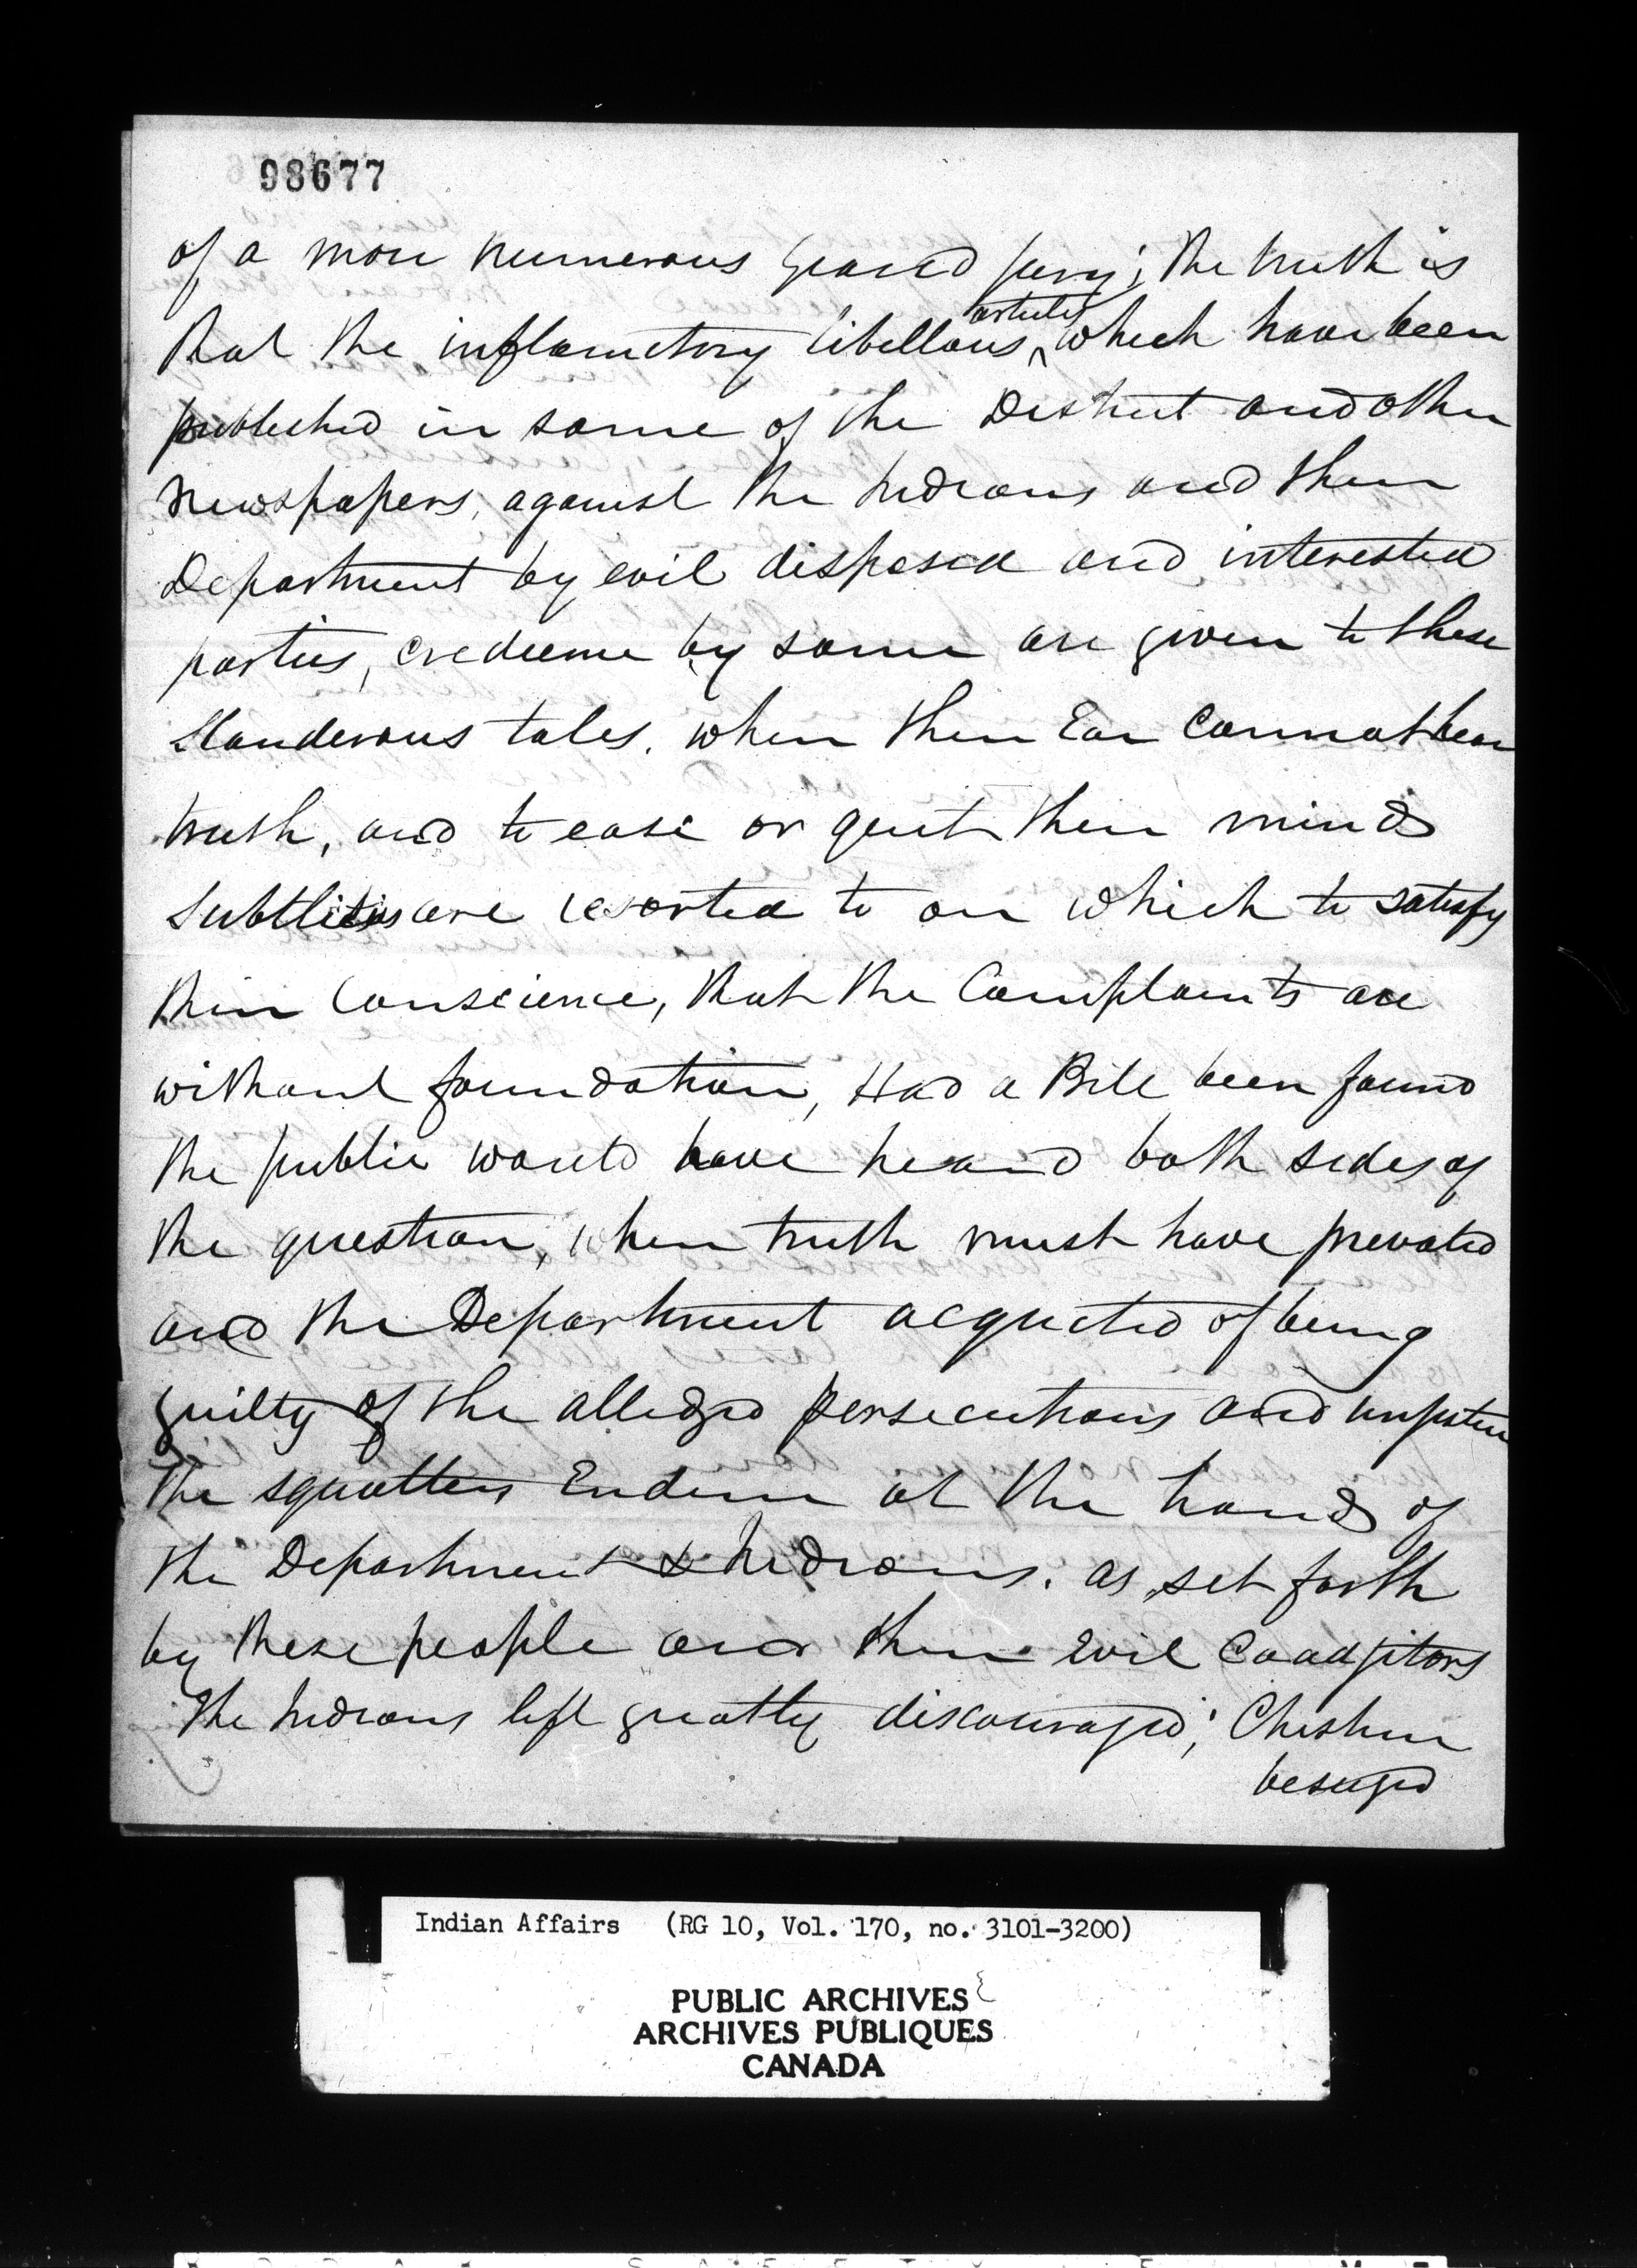 98677
of a more numerous Grand jury; the truth is
that the inflamctory libellous articles which have been
published in some of the District and other
Newspapers, against the Indians and their
Department by evil disposed and interested
parties, credience by some are given to these
slanderous tales, when their Ear cannot hear
truth, and to ease or quiet their minds
subtlities are resorted to on which to satisfy
their Conscience, that the Complaints are
without foundation, Had a Bill been found
the public would have heard both sides of
the question, when truth must have prevaled
and the Department acquited of being
guilty of the alledged persecutions and
the squatters Endure at the hands of
the Department & Indians. as set forth
by these people and their Evil Coadjitors
The Indians left greatly discouraged; Chisholm
beseiged
Indian Affairs (RG 10, Vol. 170, no. 3101-3200)
PUBLIC ARCHIVES
ARCHIVES PUBLIQUES
CANADA